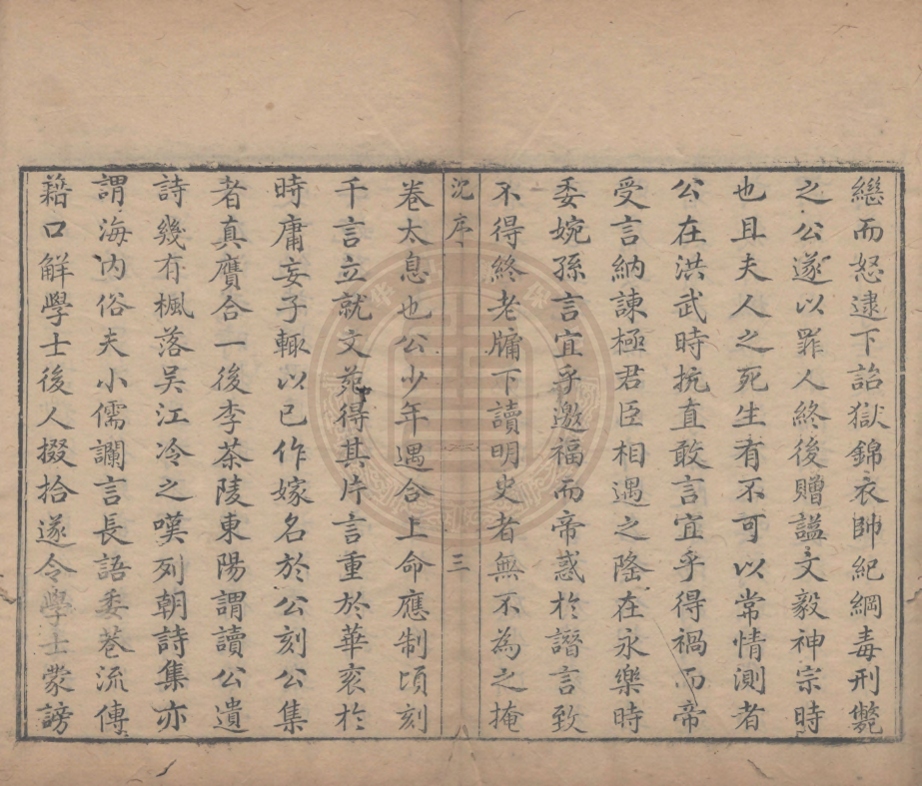 繼而怒逮下詔獄錦衣帥紀綱毒刑斃
之公遂以罪人終後贈謚文毅神宗時
也且夫人之死生有不可以常情測者
公在洪武時抗直敢言宜乎得禍而帝
受言納諫極君臣相遇之隆在永樂時
委婉孫言宜乎邀福而帝惑於譖言致
不得終老牖下讀明史者無不為之掩
沈序
三
卷太息也公少年遇合上命應制頃刻
千言立就文苑得其片言重於華衮於
時庸妄子輒以已作嫁名於公刻公集
者真贗合一後李茶陵東陽謂讀公遺
詩幾有楓落吴江冷之嘆列朝詩集亦
謂海内俗夫小儒讕言長語委巷流傳
藉口解學士後人掇拾遂令學士蒙謗